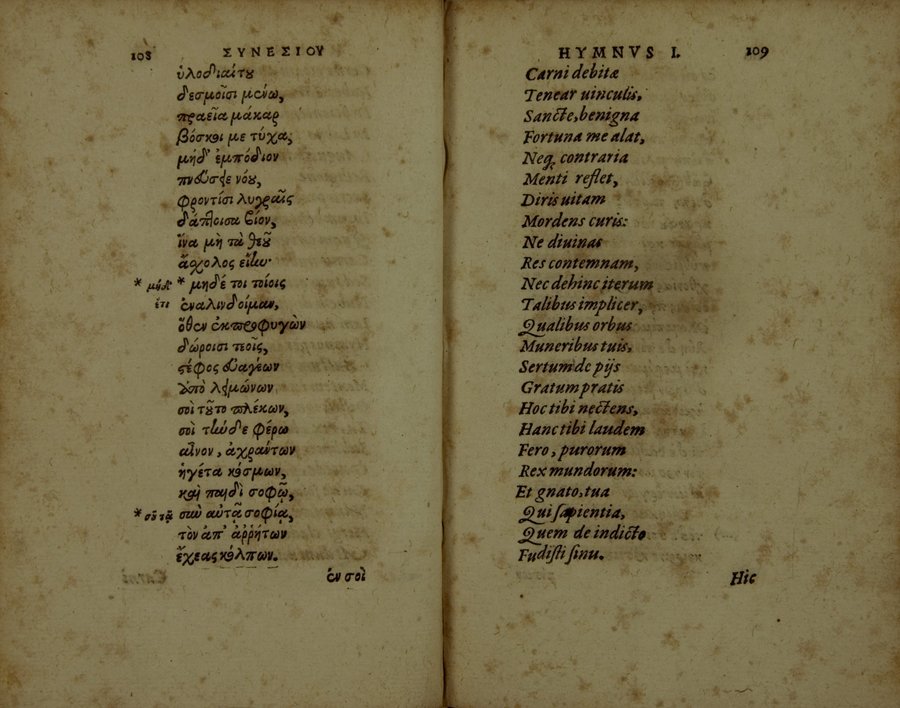 108 ΣΥΝΕΣΙΟΥ
ὑλοδιαίτου
δεσμοῖσι μένω,
πραεῖα μάκαρ
βόσκοι με τύχα,
μήδ' ἐμπόδιον
πνεύσειε νόου,
φροντίσι λυγραῖς
δάπτοισα βίον,
ἵνα μὴ τὰ θεοῦ
ἄσχολος εἴην·
* μήδ' * μηδέ τοι τοίοις
ἔτι ἐναλινδοίμαν,
ὅθεν ἐκπροφυγὼν
δώροισι τεοῖς,
στέφος εὐαγέων
ὑπὸ λειμώνων
σοὶ τοῦτο πλέκων,
σοὶ τήνδε φέρω
αἶνον, ἀχράντων
ἁγέτα κόσμων,
καὶ παιδὶ σοφῷ,
* σοῦ τᾷ σὺν αὐτᾷ σοφίᾳ,
τὸν ἀπ' ἀῤῥήτων
ἔχεας κόλπων.
ἐν σοὶ
HYMNVS I. 109
Carni debitæ
Tenear uinculis,
Sancte, benigna
Fortuna me alat,
Neq; contraria
Menti reflet,
Diris uitam
Mordens curis:
Ne diuinas
Res contemnam,
Nec dehinc iterum
Talibus implicer,
Qualibus orbus
Muneribus tuis,
Sertum de pijs
Gratum pratis
Hoc tibi nectens,
Hanc tibi laudem
Fero, purorum
Rex mundorum:
Et gnato, tua
Qui sapientia,
Quem de indicto
Fudisti sinu.
Hic